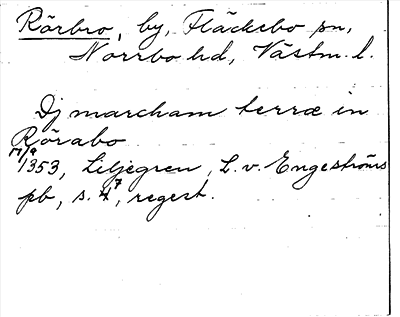 Rörbro, by, Fläckebo sn,
Norrbo hd, Västm. l.
Dj marcham terræ in
Rörabo
17/9 1353, Liljegren, L. v. Engeströms
pb, s. 47, regest.